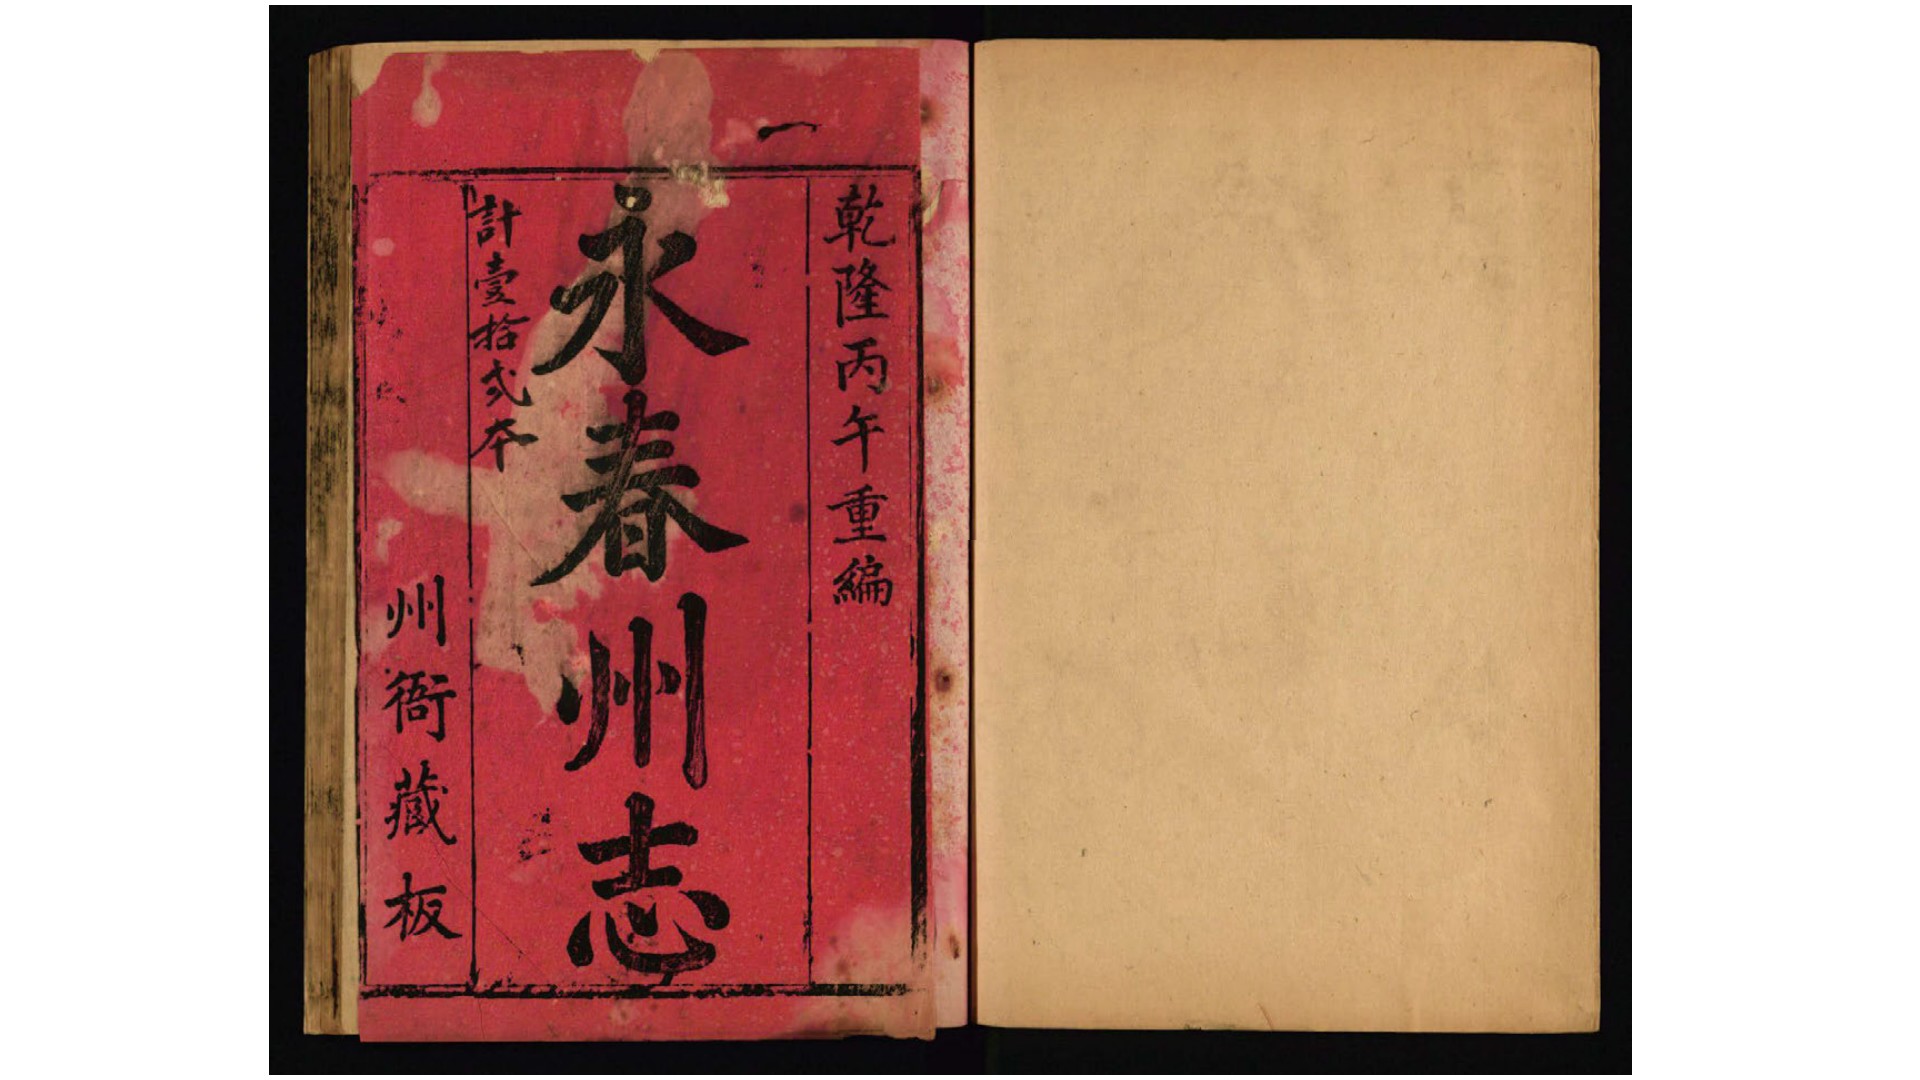 一
乾隆丙午重編
永春州志
計壹拾貳本
州衙藏板